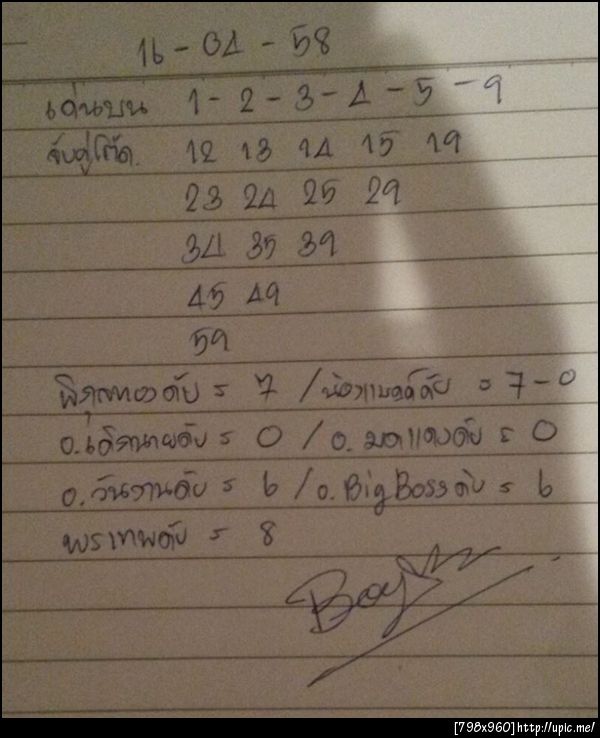 16 - 04 - 58
เด่นบน 1 - 2 - 3 - 4 - 5 - 9
จับคู่โต๊ด. 12 13 14 15 19
23 24 25 29
34 35 39
45 49
59
ดับ = 7 / น้องแบงค์ดับ = 7 - 0
อ. ดับ = 0 / อ. มดแดงดับ = 0
อ. วันงานดับ = 6 / อ. BigBossดับ = 6
พระเทพดับ = 8
Boy
[798x960]http://upic.me/